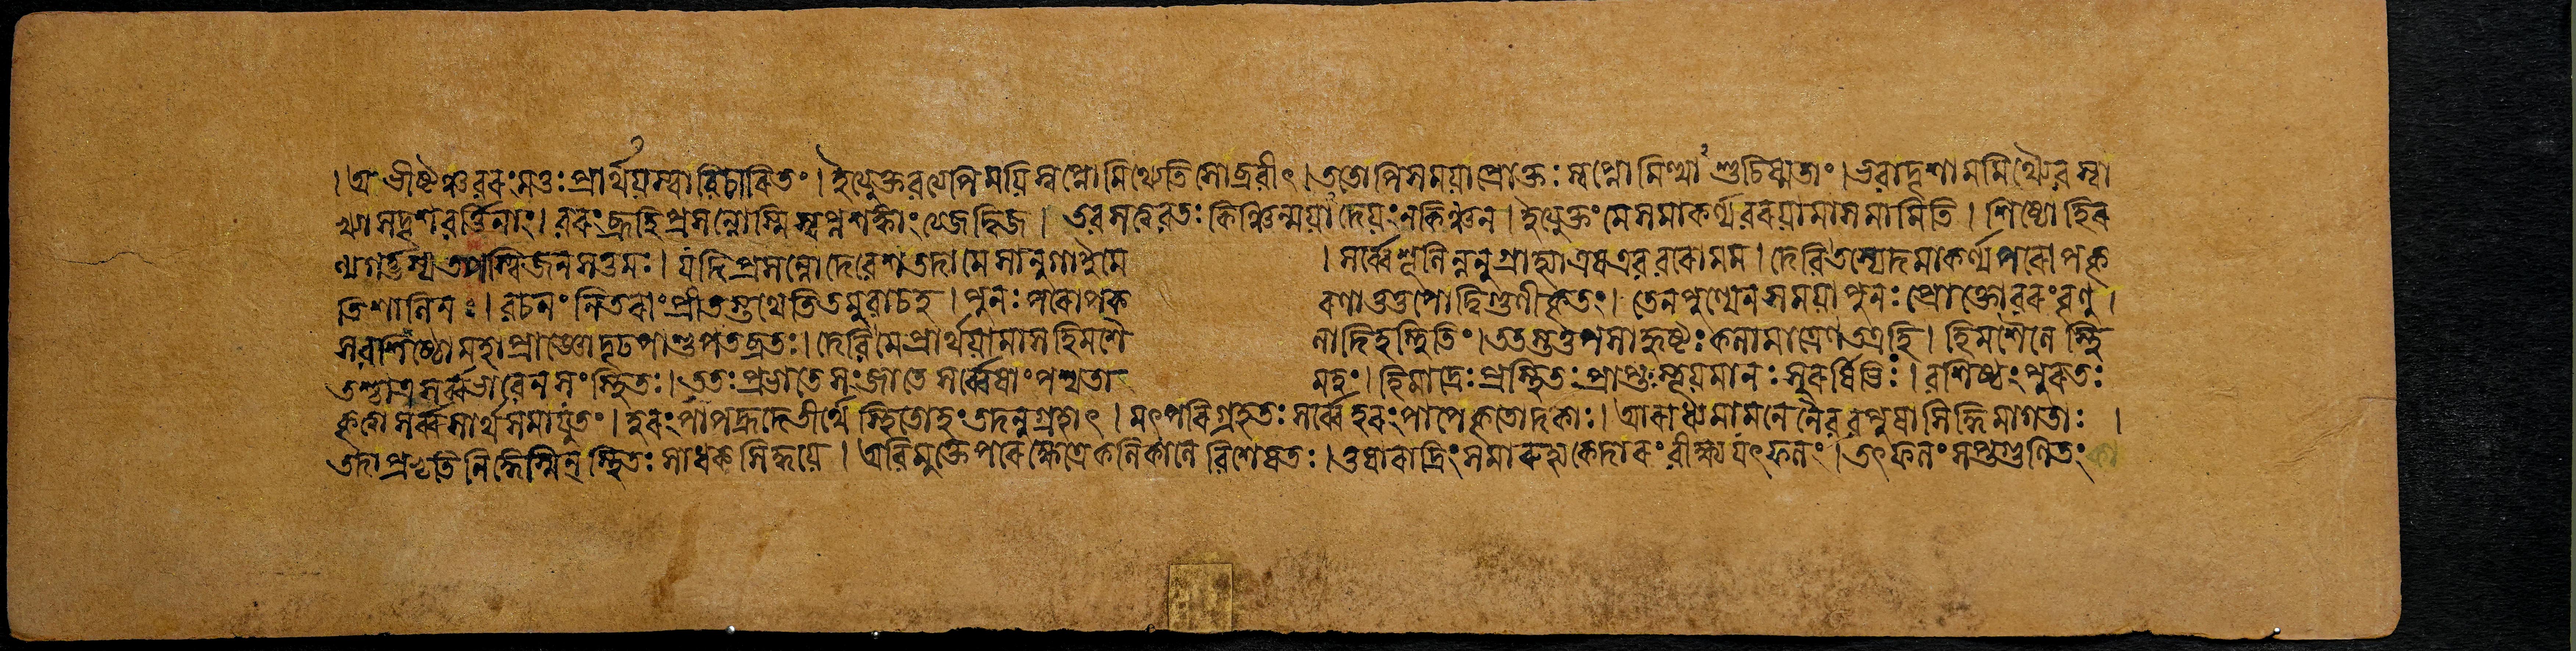 । অভীষ্টঞ্চ বরং মত্তঃ প্রার্থয়স্বাবিচারিতং । ইত্যুক্তবত্যপি ময়ি স্বপ্নো মিথ্যেতি সোব্রবীৎ । ততোপি স ময়া প্রোক্তঃ স্বপ্নো মিথ্যা শুচিষ্মতাং । ভবাদৃশামমিথ্যৈব স্বা
খ্যাসদৃশবর্ত্তিনাং । বরং ব্রূহি প্রসন্নোস্মি স্বপ্নশঙ্কাং ত্যজ দ্বিজ । তব সত্ত্ববতঃ কিঞ্চিন্ময়াদেয়ং ন কিঞ্চন । ইত্যুক্তং মে সমাকর্ণ্য বরয়ামাস মামিতি । শিষ্যো হির
ণ্যগর্ভস্য তপস্বিজনসত্তমঃ । যদি প্রসন্নো দেবেশ তদা মে সানুগা ইমে । সর্ব্বে শূলিন্ননুগ্রাহ্যা এষ এব বরো মম । দেবি তস্যেদমাকর্ণ্য পরোপকৃ
তিশালিনঃ । বচনং নিতরাং প্রীতস্তথেতি তমুবাচ হ । পুনঃ পরোপক রণাত্তত্তপো দ্বিগুণীকৃতং । তেন পুণ্যেন স ময়া পুনঃ প্রোক্তো বরং বৃণু ।
স বশিষ্ঠো মহাপ্রাজ্ঞো দৃঢপাশুপতব্রতঃ । দেবি মে প্রার্থয়ামাস হিমশৈ লাদিহ স্থিতিং । ততস্তত্তপসাকৃষ্টঃ কলামাত্রেণ তত্র হি । হিমশৈলে স্থি
তশ্চাত্র সর্ব্বভাবেন সংস্থিতঃ । ততঃ প্রভাতে সংজাতে সর্ব্বেষাং পশ্যতা মহং । হিমাদ্রেঃ প্রস্থিতঃ প্রাপ্তঃ স্তূয়মানঃ সুরর্ষিভিঃ । বশিষ্ঠং পুরতঃ
কৃত্বা সর্ব্বসার্থসমাযুতং । হরংপাপহ্রদে তীর্থে স্থিতোহং তদনুগ্রহাৎ । মৎপরিগ্রহতঃ সর্ব্বে হরংপাপে কৃতোদকাঃ । আরাধ্য মামনেনৈব বপুষা সিদ্ধিমাগতাঃ ।
তদা প্রভৃতি লিঙ্গেস্মিন্ স্থিতঃ সাধকসিদ্ধয়ে । অবিমুক্তে পরে ক্ষেত্রে কলিকালে বিশেষতঃ । তুষারাদ্রিং সমারুহ্য কেদারং বীক্ষ্য যৎফলং । তৎফলং সপ্তগুণিতং কা